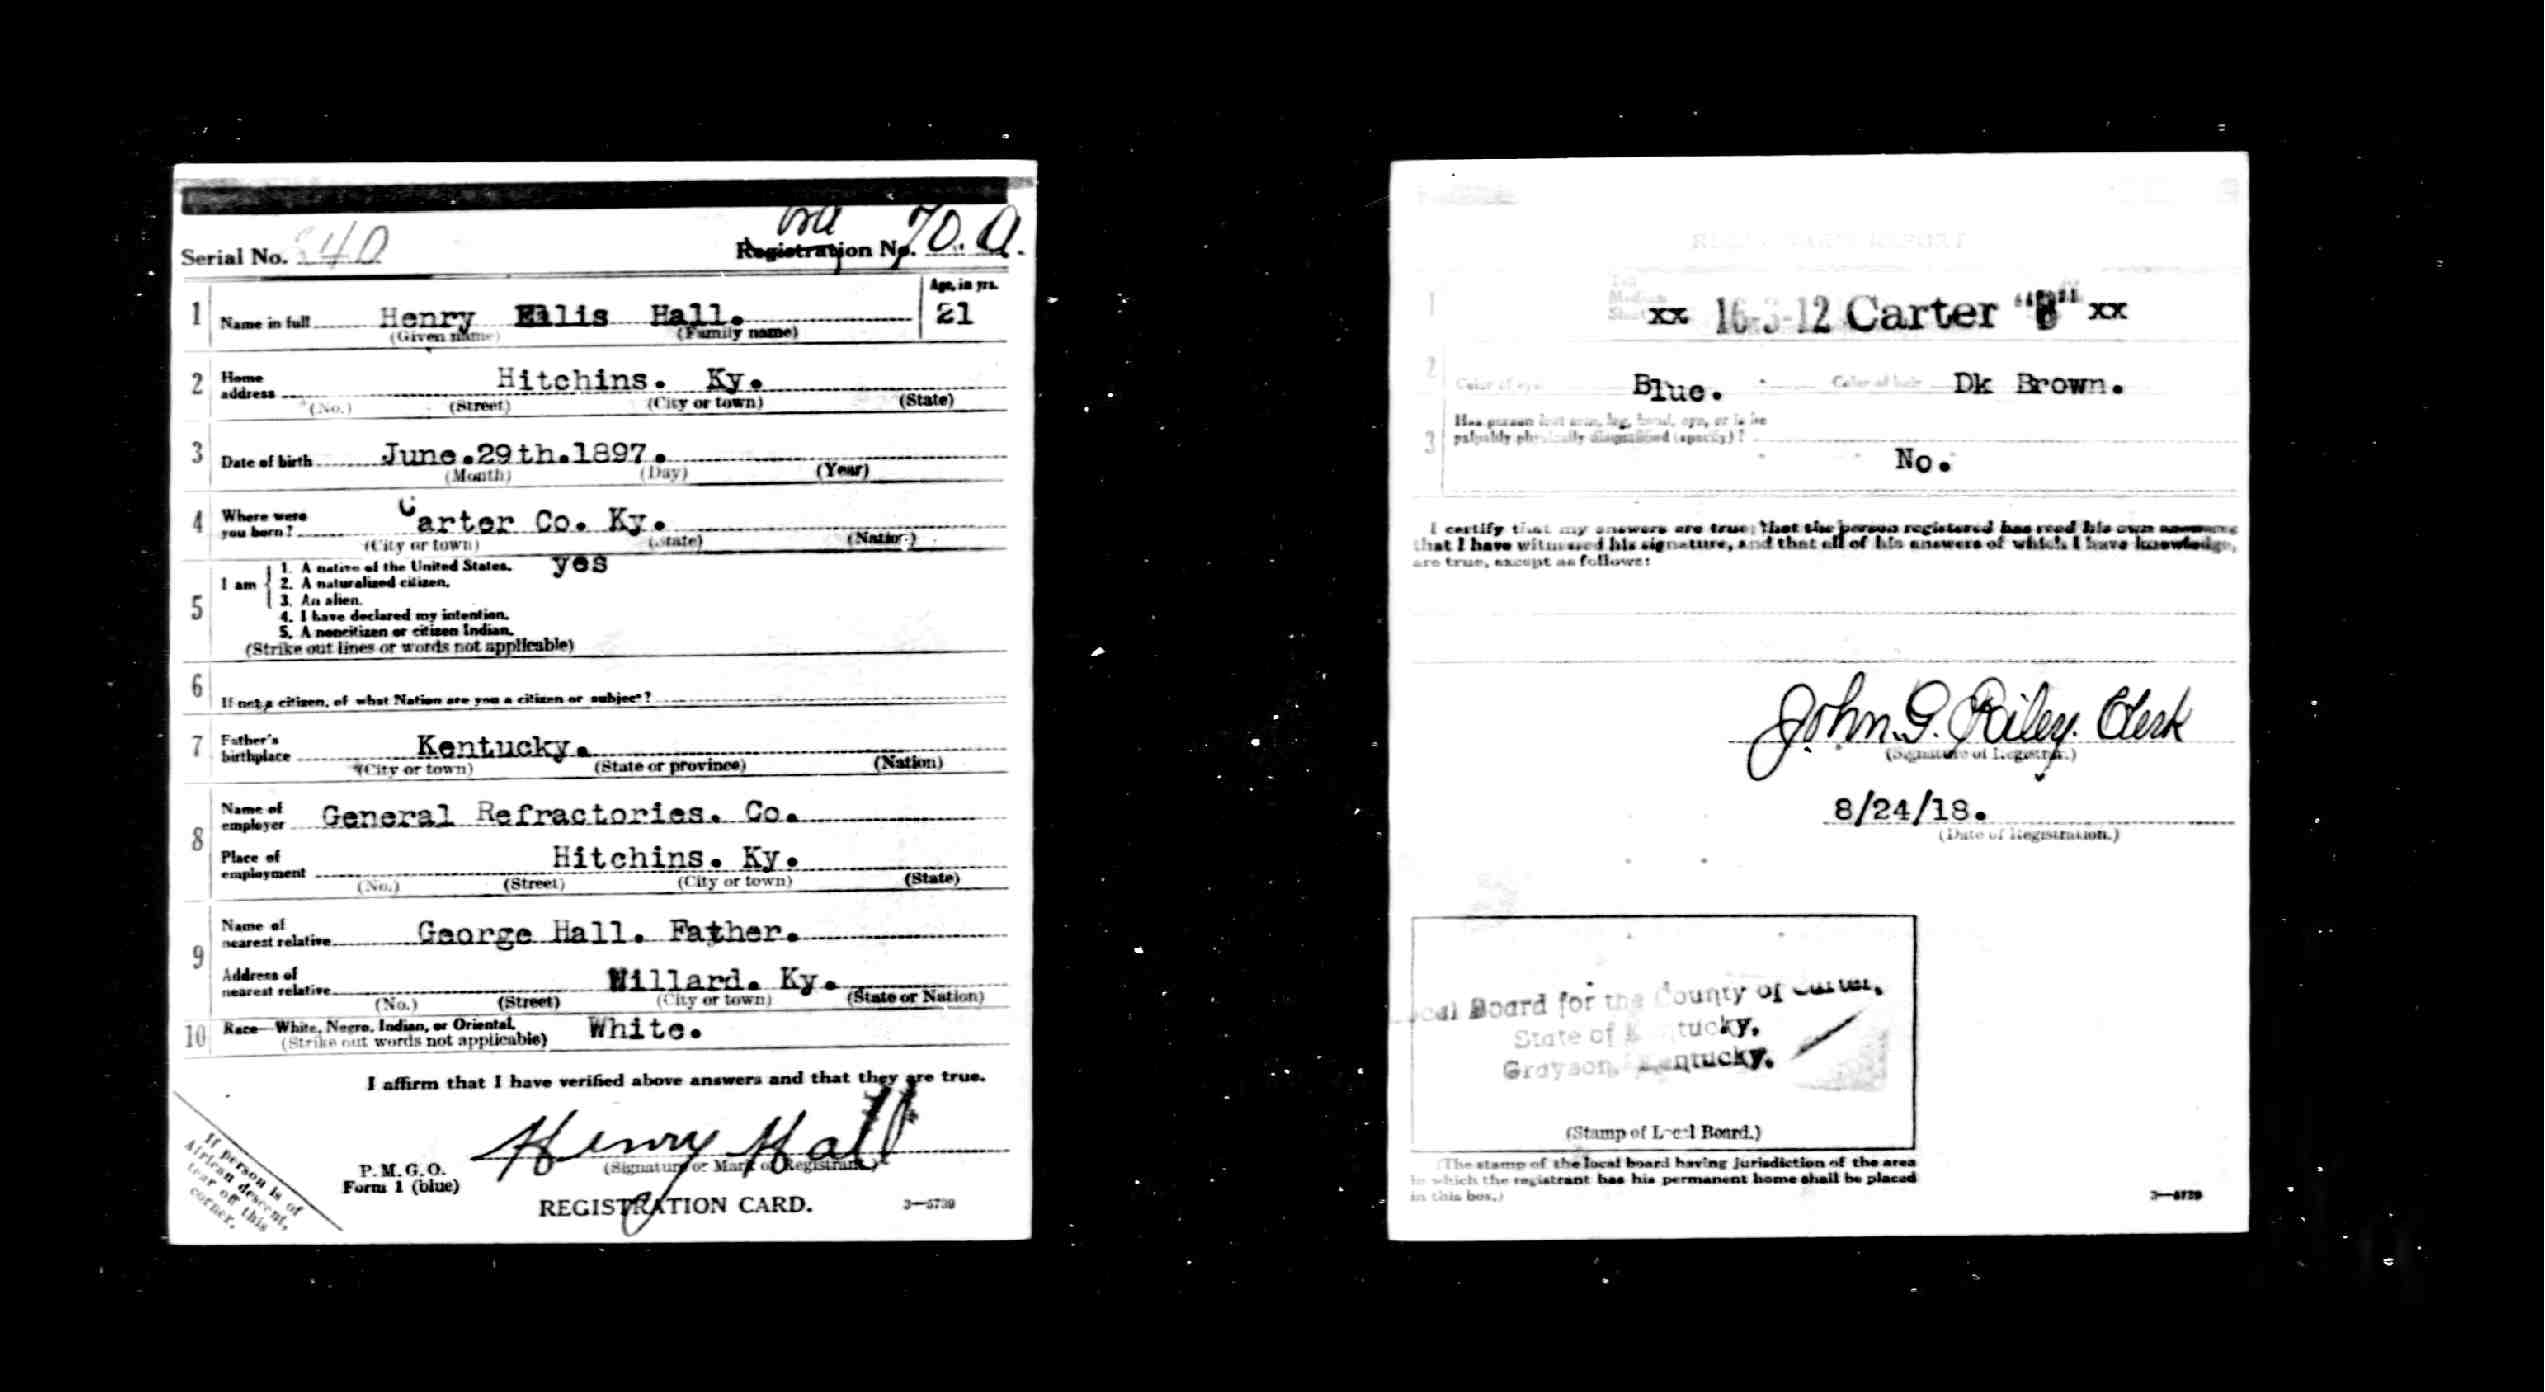 Serial No. 340
Registration No. 70. A.
Ord
1 Name in full Henry Ellis Hall. Age, in yrs. 21
(Given name) (Family name)
2 Home address Hitchins. Ky.
(No.) (Street) (City or town) (State)
3 Date of birth June.29th.1897.
(Month) (Day) (Year)
4 Where were you born? Carter Co. Ky.
(City or town) (State) (Nation)
5 I am
1. A native of the United States. yes
2. A naturalized citizen.
3. An alien.
4. I have declared my intention.
5. A noncitizen or citizen Indian.
(Strike out lines or words not applicable)
6 If not a citizen, of what Nation are you a citizen or subject?
7 Father's birthplace Kentucky.
(City or town) (State or province) (Nation)
8 Name of employer General Refractories. Co.
Place of employment Hitchins. Ky.
(No.) (Street) (City or town) (State)
9 Name of nearest relative George Hall. Father.
Address of nearest relative Willard. Ky.
(No.) (Street) (City or town) (State or Nation)
10 Race—White, Negro, Indian, or Oriental. White.
(Strike out words not applicable)
I affirm that I have verified above answers and that they are true.
Henry Hall
(Signature or Mark of Registrant.)
P. M. G. O.
Form 1 (blue)
REGISTRATION CARD. 3—5739
If person is of
African descent,
tear off this
corner.
REGISTRAR'S REPORT
1 Tall
Medium
Short
xx 16-3-12 Carter "B" xx
2 Color of eyes Blue. Color of hair Dk Brown.
3 Has person lost arm, leg, hand, eye, or is he
palpably physically disqualified (specify)?
No.
I certify that my answers are true; that the person registered has read his own answers
that I have witnessed his signature, and that all of his answers of which I have knowledge,
are true, except as follows:
John. G. Riley. Clerk
(Signature of Registrar.)
8/24/18.
(Date of Registration.)
Local Board for the County of Carter,
State of Kentucky,
Grayson, Kentucky.
(Stamp of Local Board.)
(The stamp of the local board having jurisdiction of the area
in which the registrant has his permanent home shall be placed
in this box.)
3—5739